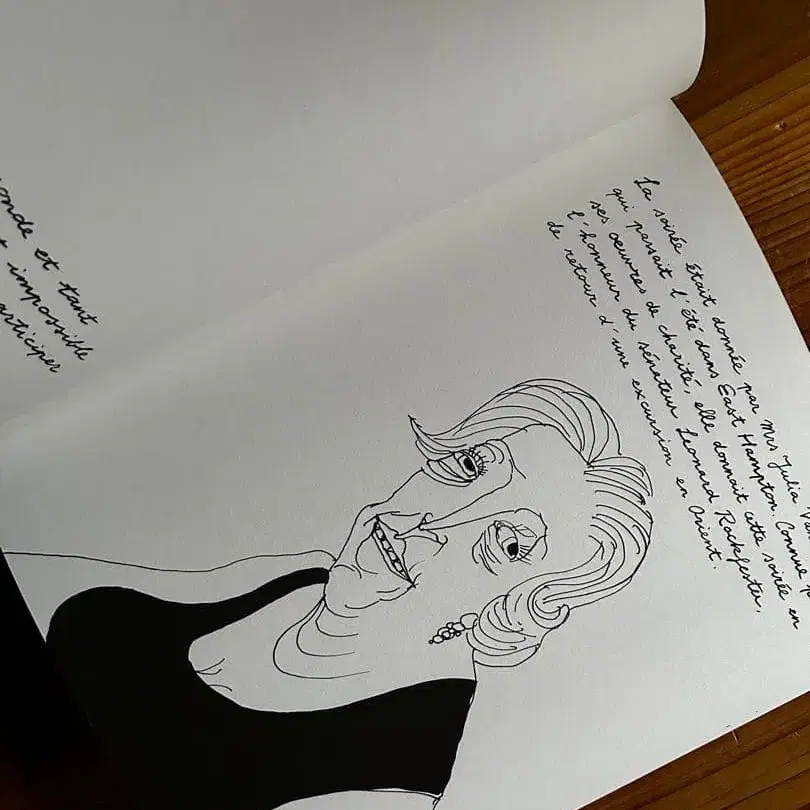 onde et tant
impossible
articiper
La soirée était donnée par Mrs Julia
qui passait l'été dans East Hampton. Connue
ses oeuvres de charité, elle donnait cette soirée en
l'honneur du sénateur Leonard Rackfester,
de retour d'une excursion en Orient.